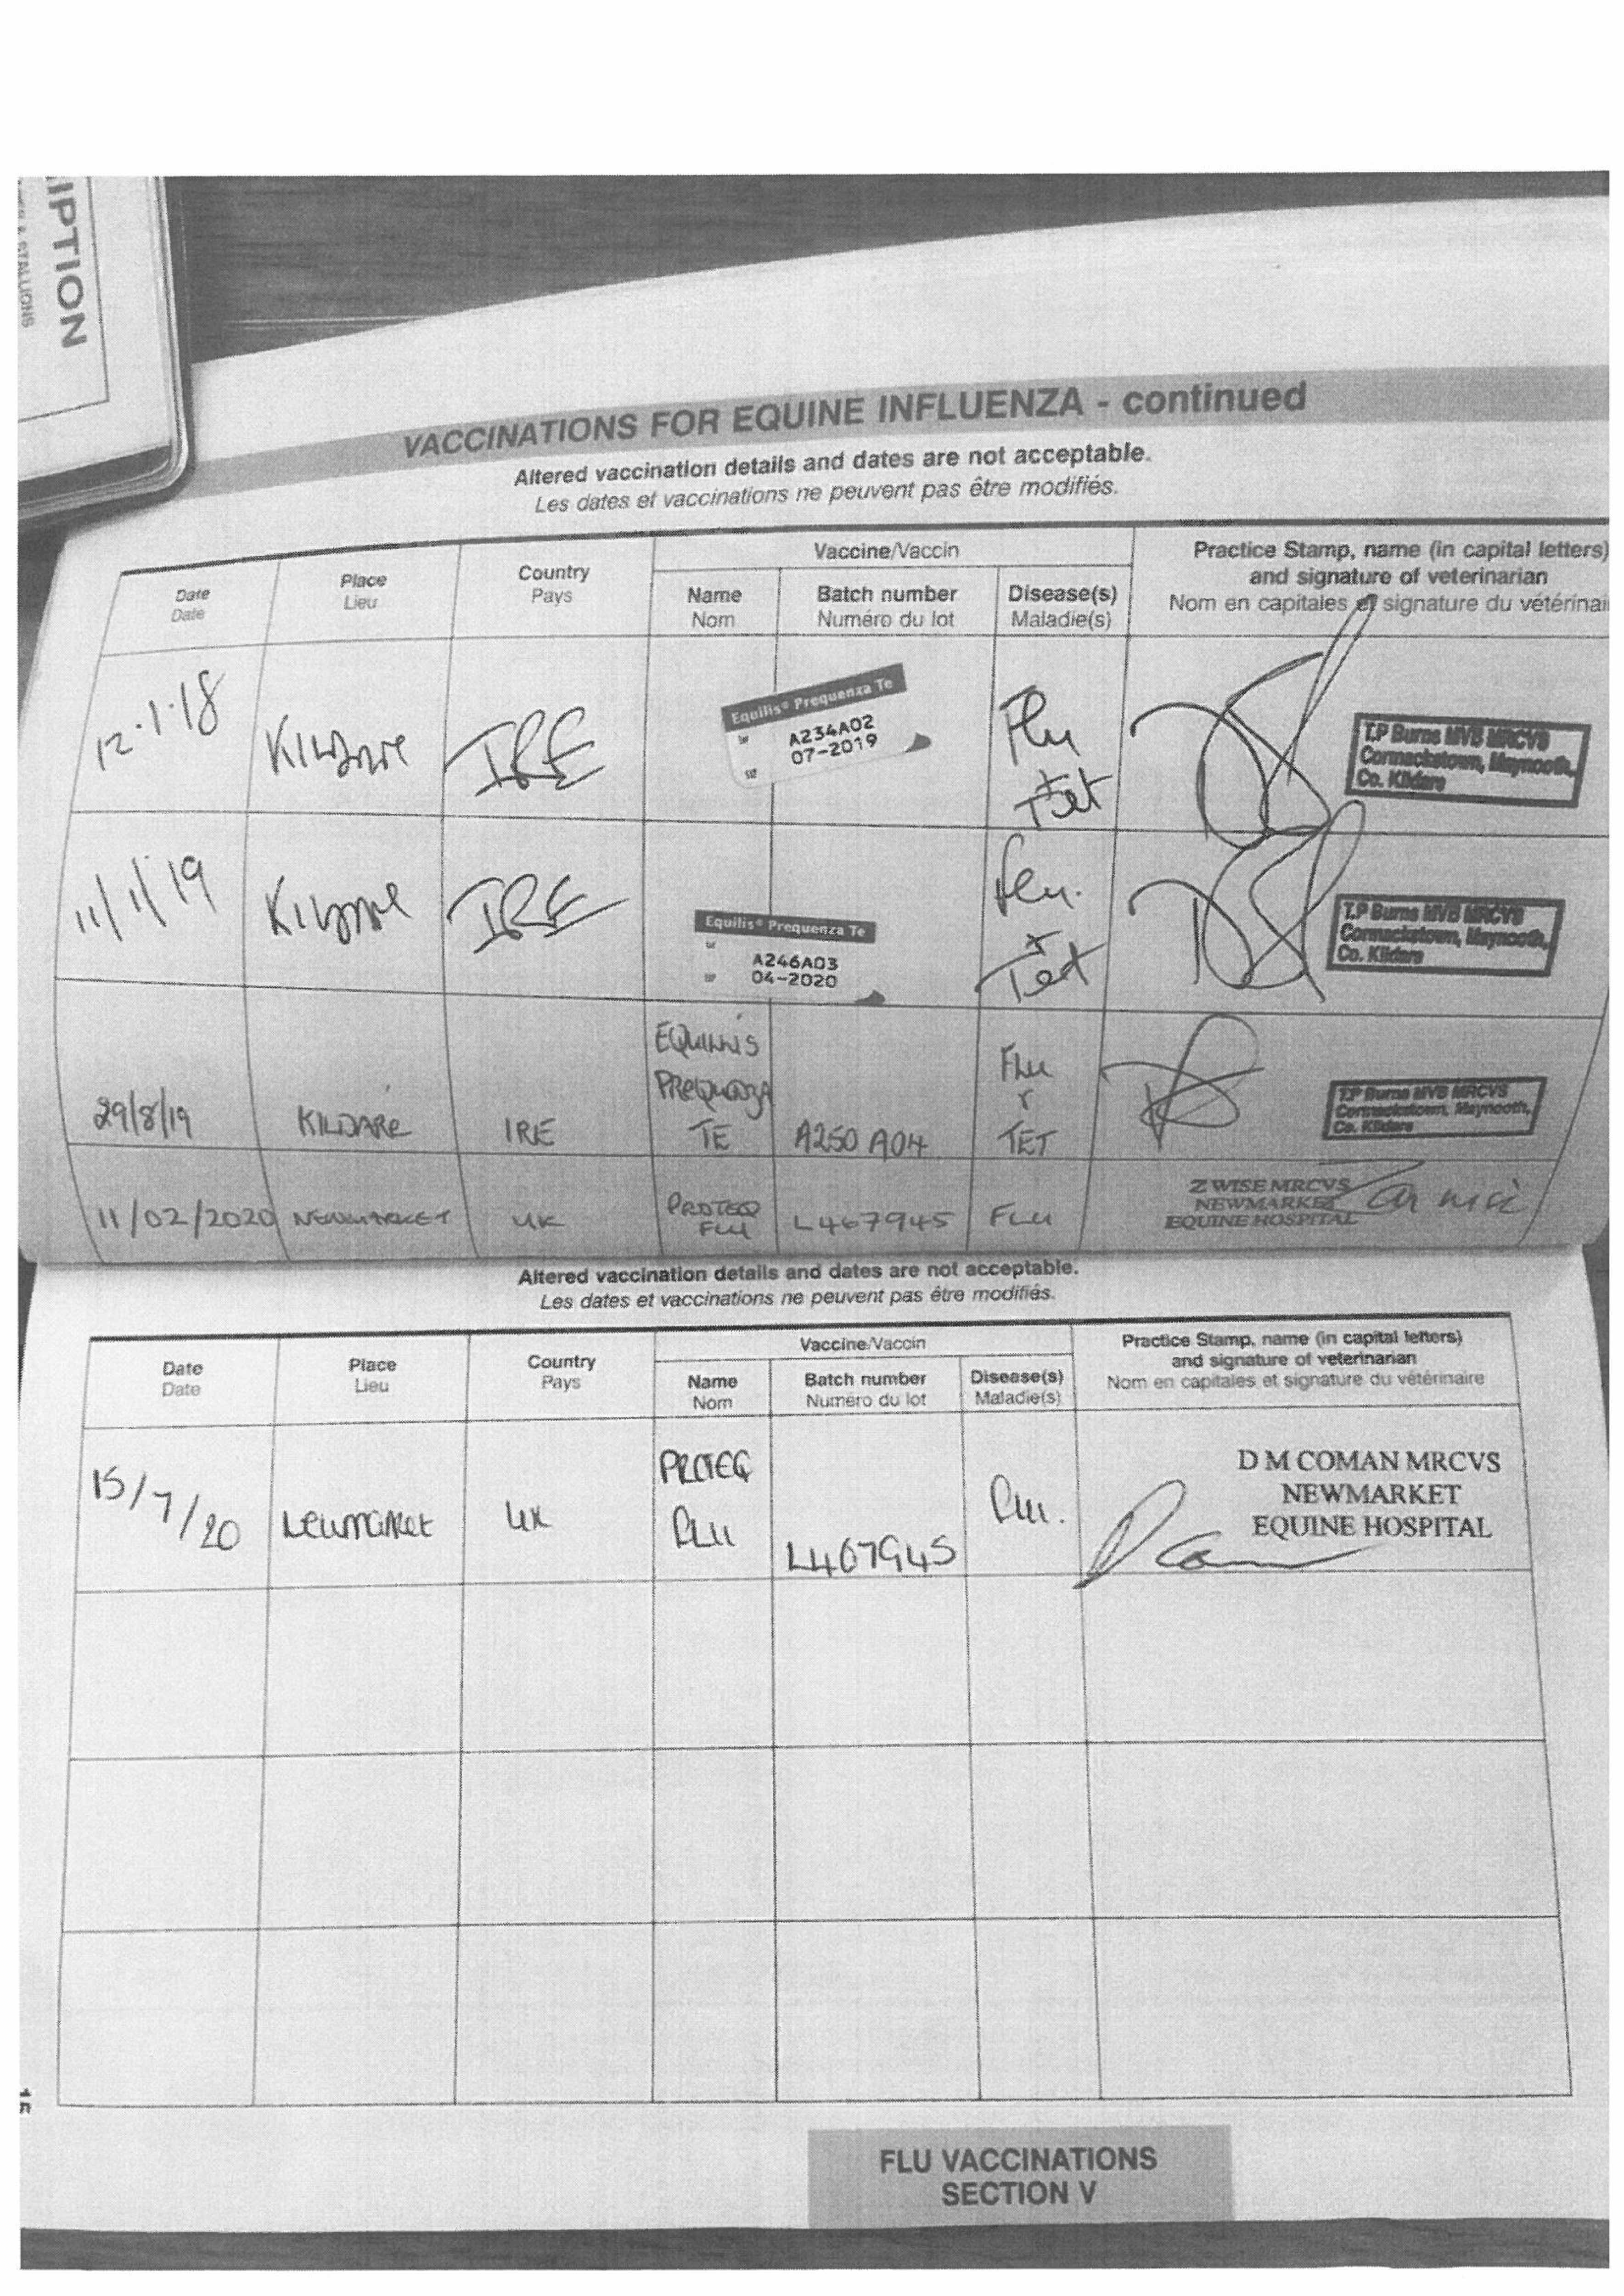 IPTION
VACCINATIONS FOR EQUINE INFLUENZA - continued
Altered vaccination details and dates are not acceptable.
Les dates et vaccinations ne peuvent pas être modifiés.
Date Place Country Vaccine/Vaccin Practice Stamp, name (in capital letters)
Date Lieu Pays Name Batch number Disease(s) and signature of veterinarian
Nom Numéro du lot Maladie(s) Nom en capitales et signature du vétérinai
12.1.18 KILDARE IRE Equilis® Prequenza Te Flu
A234A02 + Tet
07-2019
T.P Burns MVB MRCVS
Cormackstown, Maynooth,
Co. Kildare
11/1/19 KILDARE IRE Equilis® Prequenza Te Flu.
A246A03 + Tet
04-2020
T.P Burns MVB MRCVS
Cormackstown, Maynooth,
Co. Kildare
EQUILIS
PREQUENZA FLU
29/8/19 KILDARE IRE TE A250 A04 TET
T.P Burns MVB MRCVS
Cormackstown, Maynooth,
Co. Kildare
11/02/2020 NEWMARKET UK PROTEQ FLU L467945 FLU
Z WISE MRCVS
NEWMARKET
EQUINE HOSPITAL
Altered vaccination details and dates are not acceptable.
Les dates et vaccinations ne peuvent pas être modifiés.
Date Place Country Vaccine/Vaccin Practice Stamp, name (in capital letters)
Date Lieu Pays Name Batch number Disease(s) and signature of veterinarian
Nom Numéro du lot Maladie(s) Nom en capitales et signature du vétérinaire
15/7/20 Newmarket UK PROTEQ FLU L467945 Flu.
D M COMAN MRCVS
NEWMARKET
EQUINE HOSPITAL
FLU VACCINATIONS
SECTION V